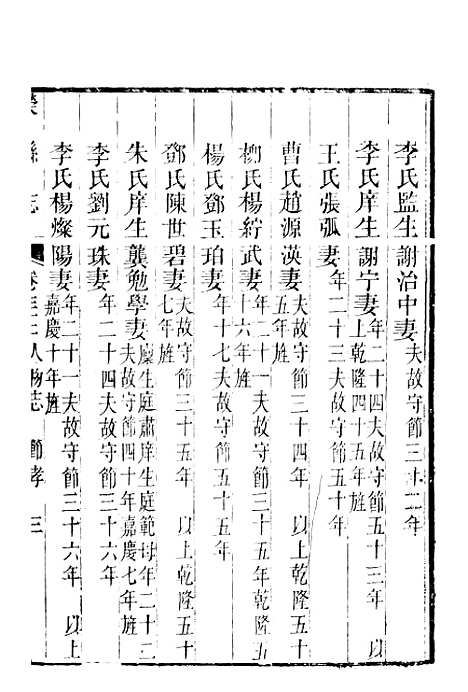 李氏監生謝治中妻夫故守節三十二年
李氏庠生謝宁妻年二十四夫故守節五十三年 以上乾隆四十五年旌
王氏張弧妻年二十三夫故守節五十年
曹氏趙源渶妻夫故守節三十四年 以上乾隆五十五年旌
柳氏楊紟武妻年二十一夫故守節五十五年乾隆五十六年旌
楊氏鄧玉珀妻年十七夫故守節五十五年
鄧氏陳世碧妻夫故守節三十五年 以上乾隆五十七年旌
朱氏庠生龔勉學妻廩生庭肅庠生庭範母年二十二夫故守節四十年嘉慶七年旌
李氏劉元珠妻年二十四夫故守節三十六年
李氏楊燦陽妻年二十一夫故守節三十六年 以上嘉慶十年旌
縣志 卷三十二人物志 節孝 三